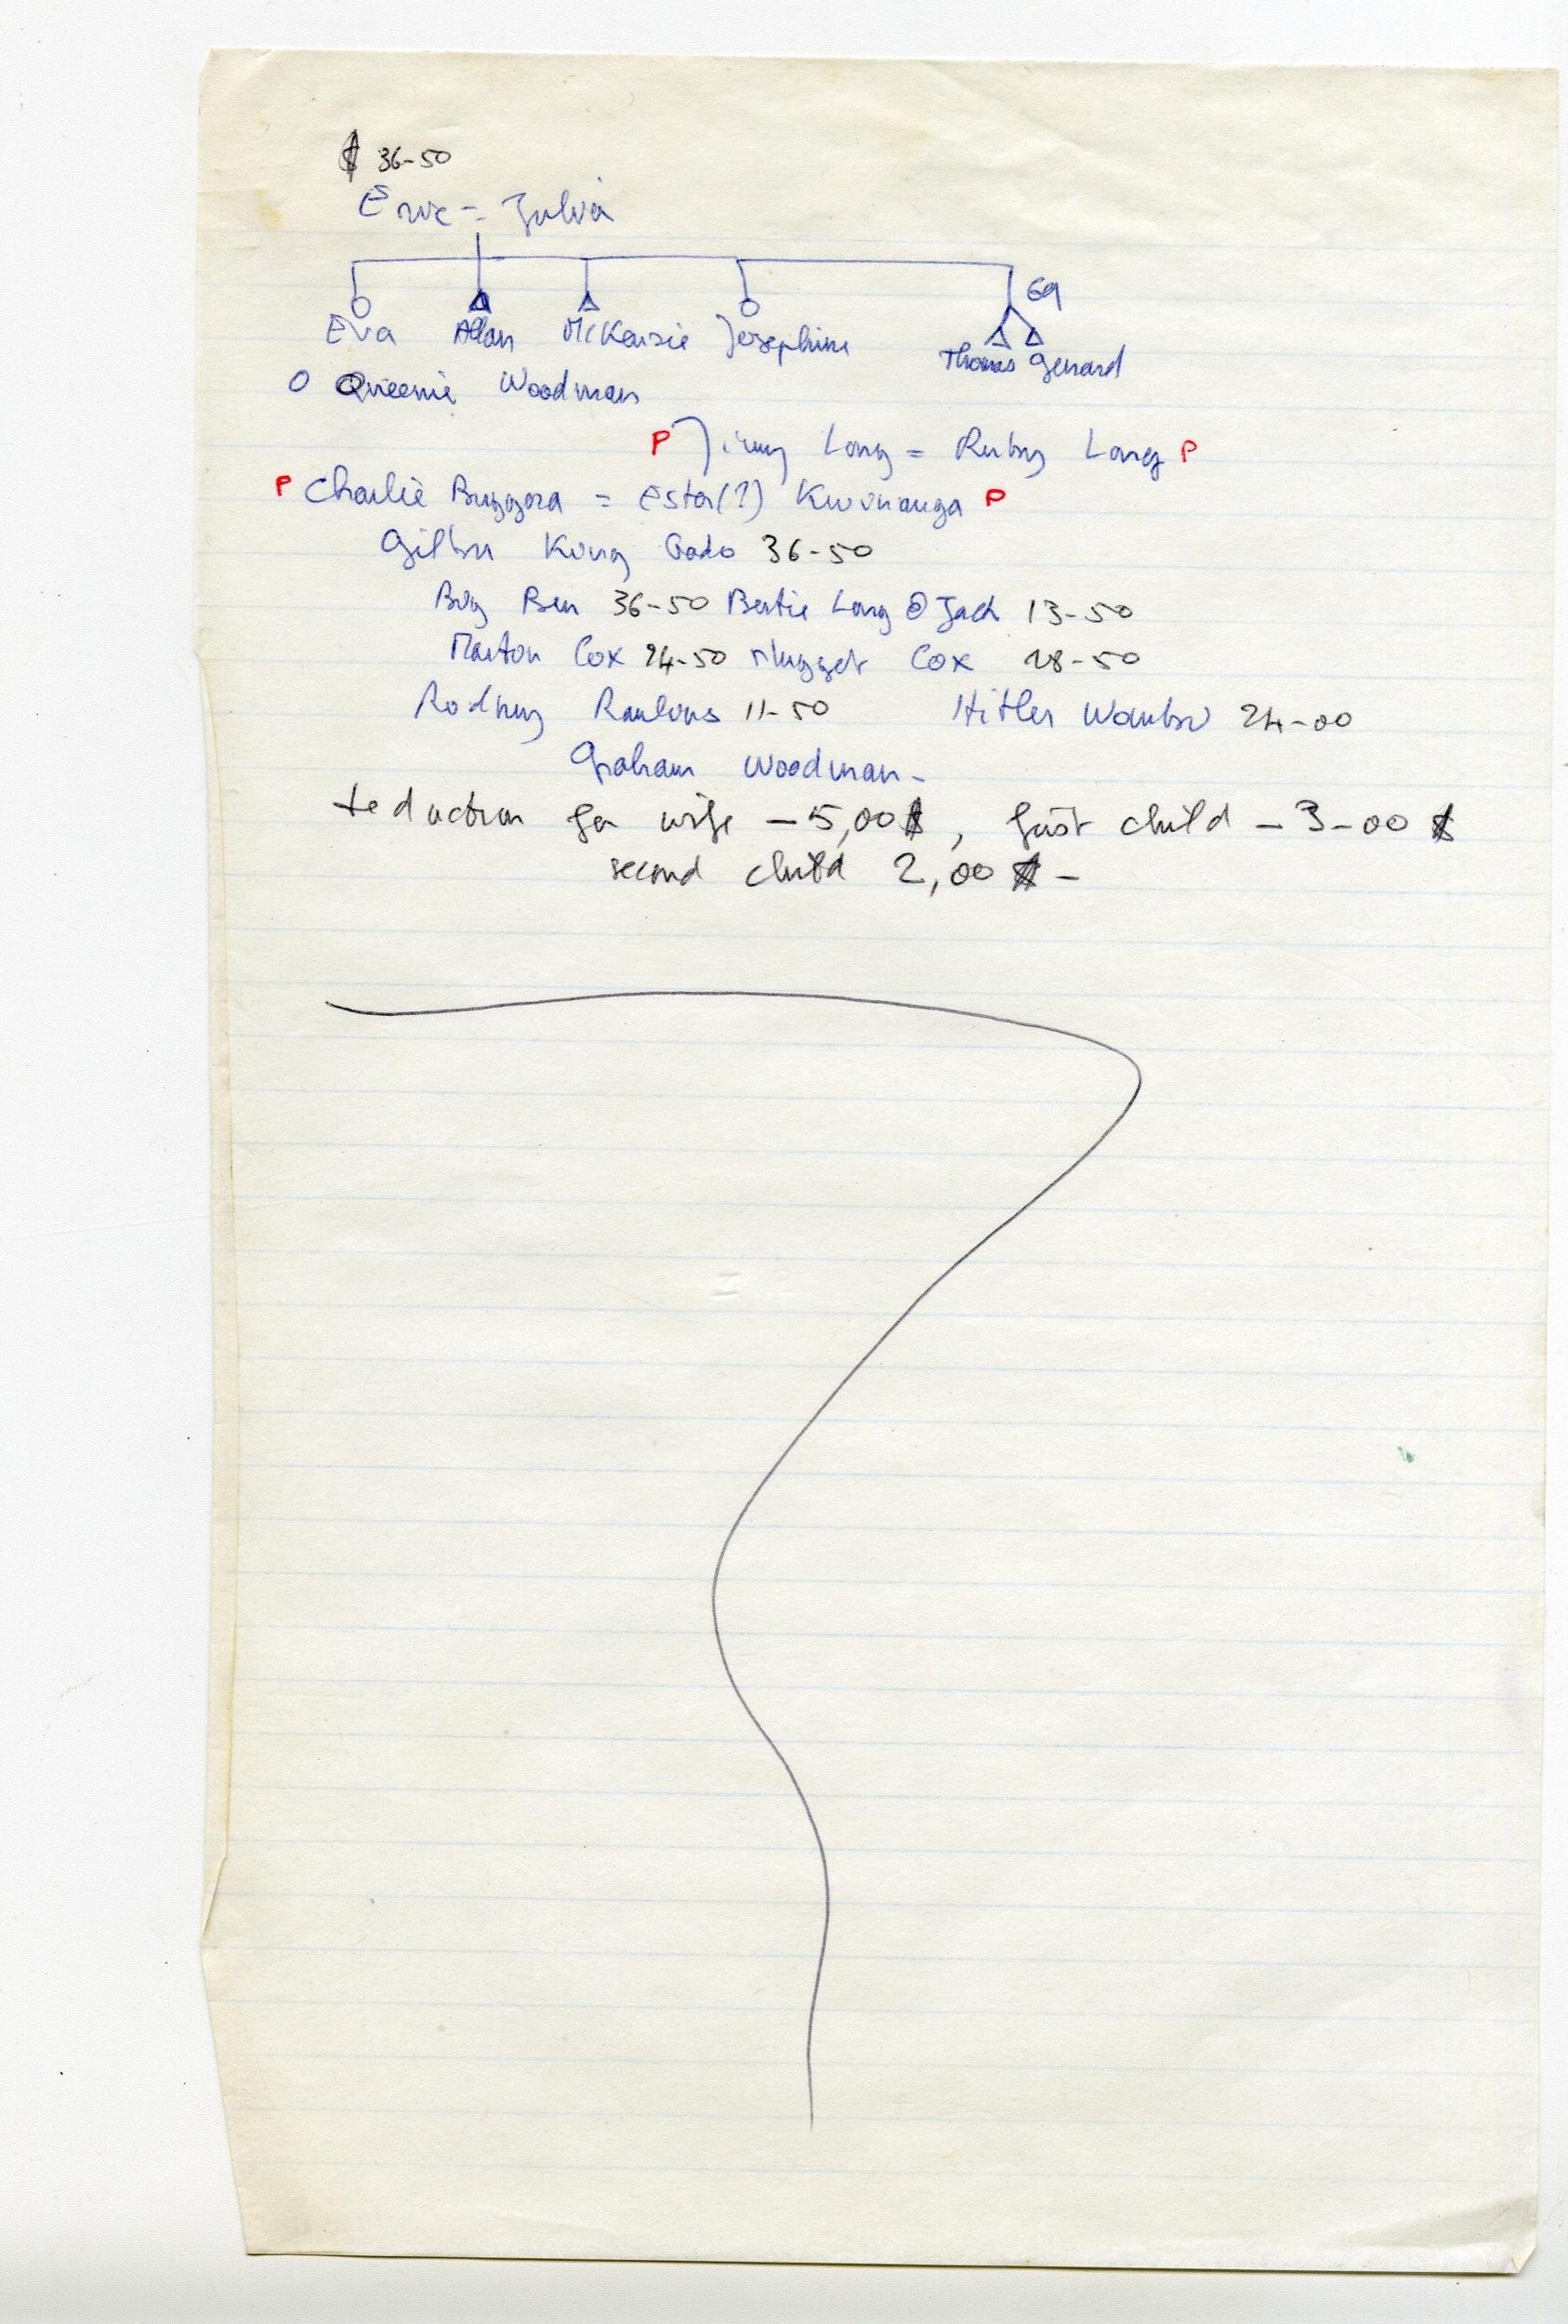 $ 36-50
Eric = Julia
69
Eva Allan McKenzie Josephine
Thomas Gerard
O Queenie Woodman
P Jimmy Long = Ruby Long P
P Charlie Buggora = Ester(?) P
King 36-50
Big Ben 36-50 Bertie Long @ Jack 13-50
Marton Cox 24-50 Nugget Cox 28-50
Rodney 11-50 Hitler 24-00
Graham Woodman -
deduction for wife - 5,00 $, first child - 3-00 $
second child 2,00 $ -